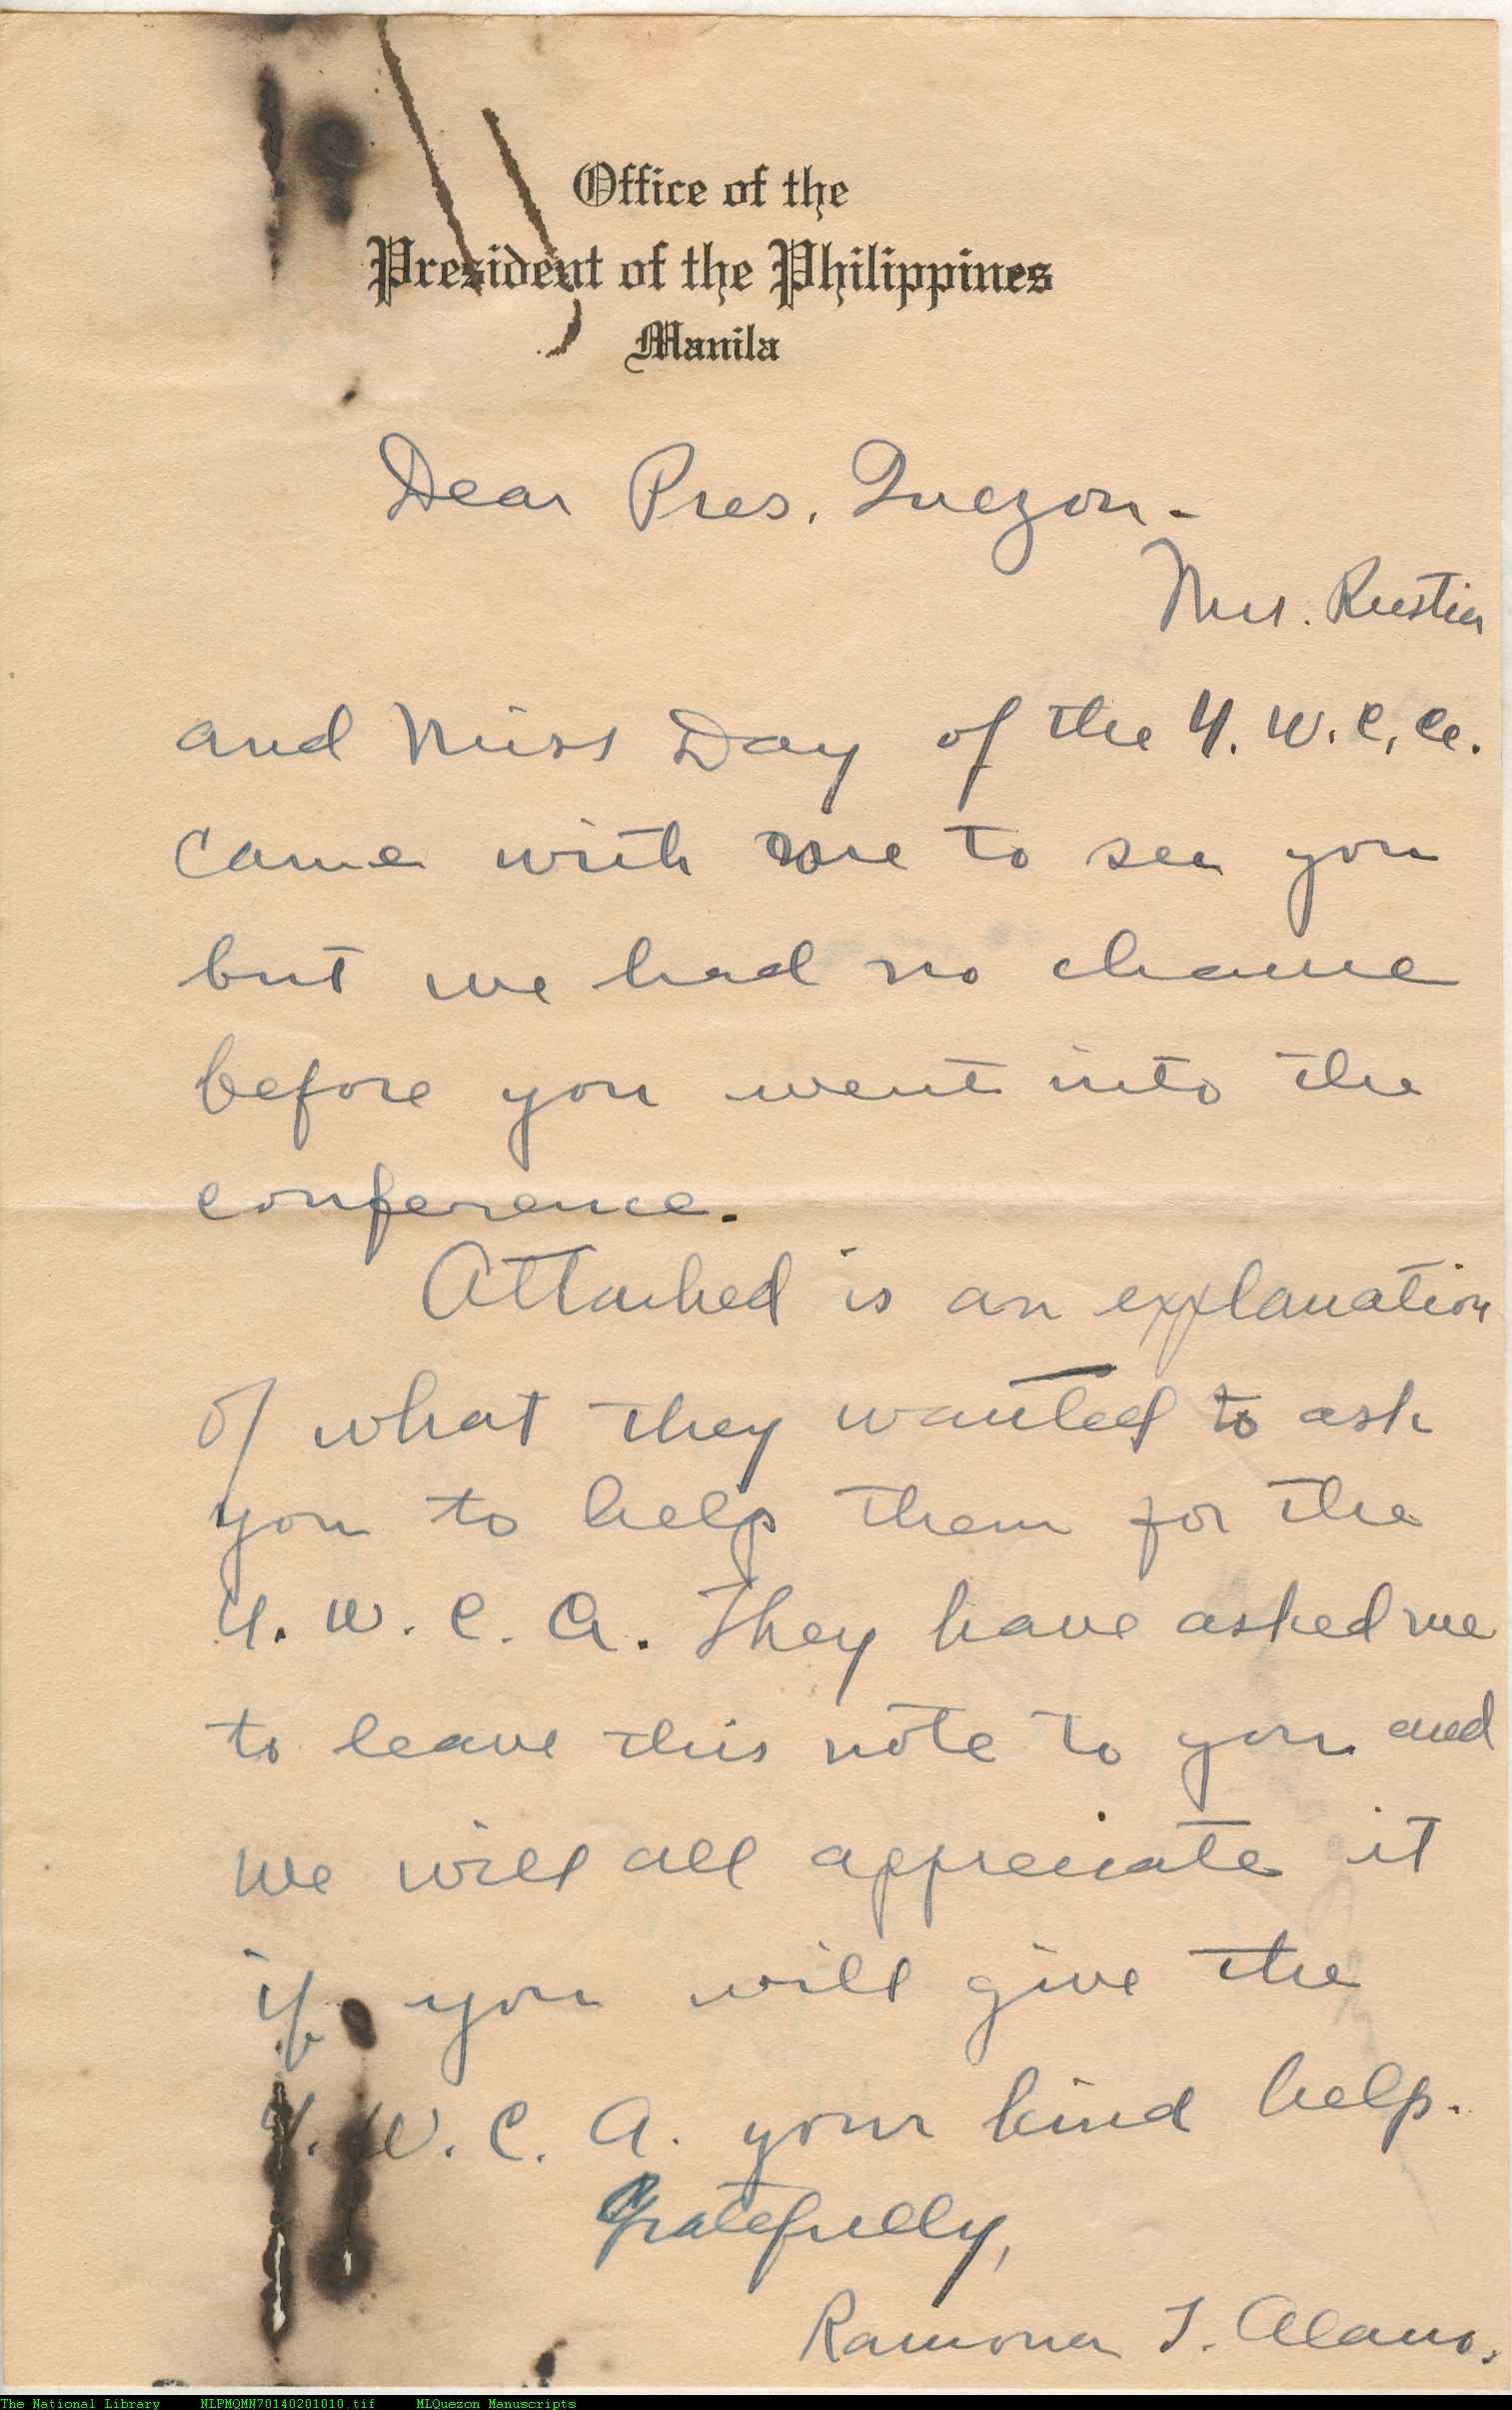 Office of the
President of the Philippines
Manila
Dear Pres. Quezon-
Mrs. Rustia
and Miss Day of the Y. W. C. A.
came with me to see you
but we had no chance
before you went into the
conference.
Attached is an explanation
of what they wanted to ask
you to help them for the
Y. W. C. A. They have asked me
to leave this note to you and
we will all appreciate it
if you will give the
Y. W. C. A. your kind help.
Gratefully,
Ramona T. Alano.
The National Library NLPMQMN70140201010.tif MLQuezon Manuscripts